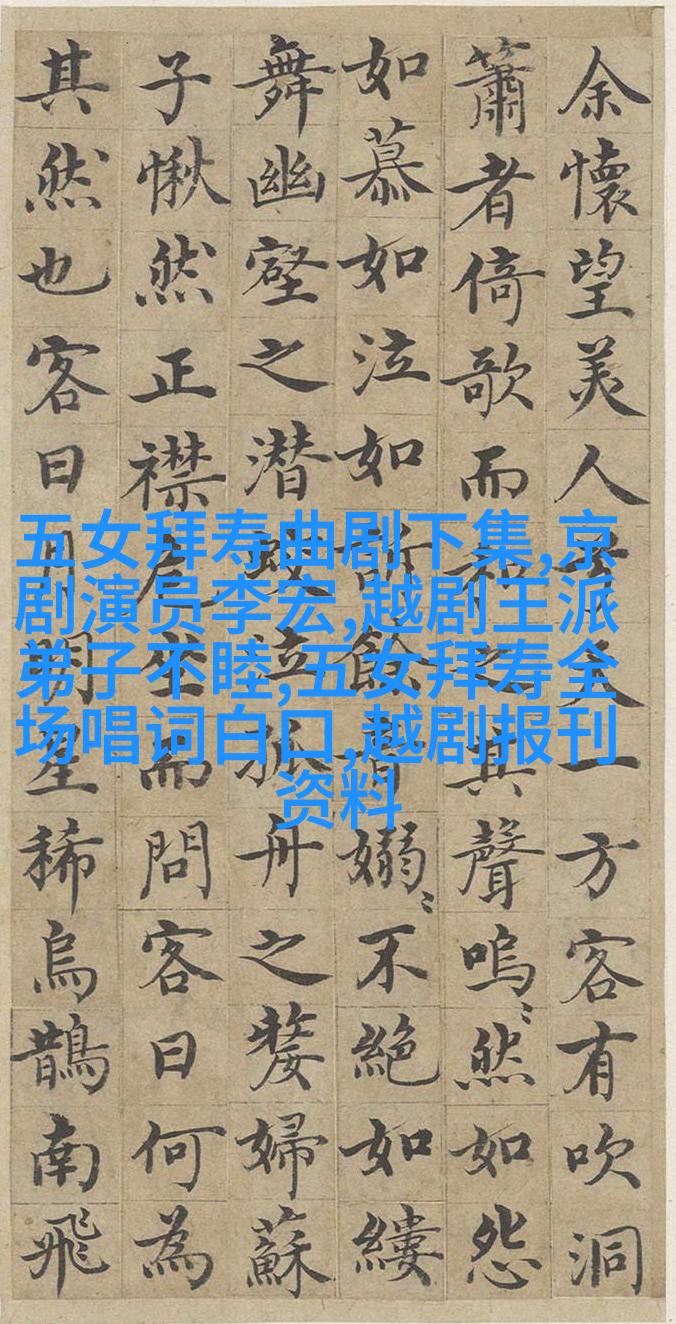 余懷望美人兮天一方客有吹洞
簫者倚歌而和之其聲嗚〻然如怨
如慕如泣如訴餘音嫋〻不絕如縷
舞幽壑之潛蛟泣孤舟之嫠婦蘇
子愀然正襟危坐而問客曰何為
其然也客曰月明星稀烏鵲南飛
五女拜寿曲剧下集,京
剧演员李宏,越剧王派
弟子不睦,五女拜寿全
场唱词白口,越剧报刊
资料